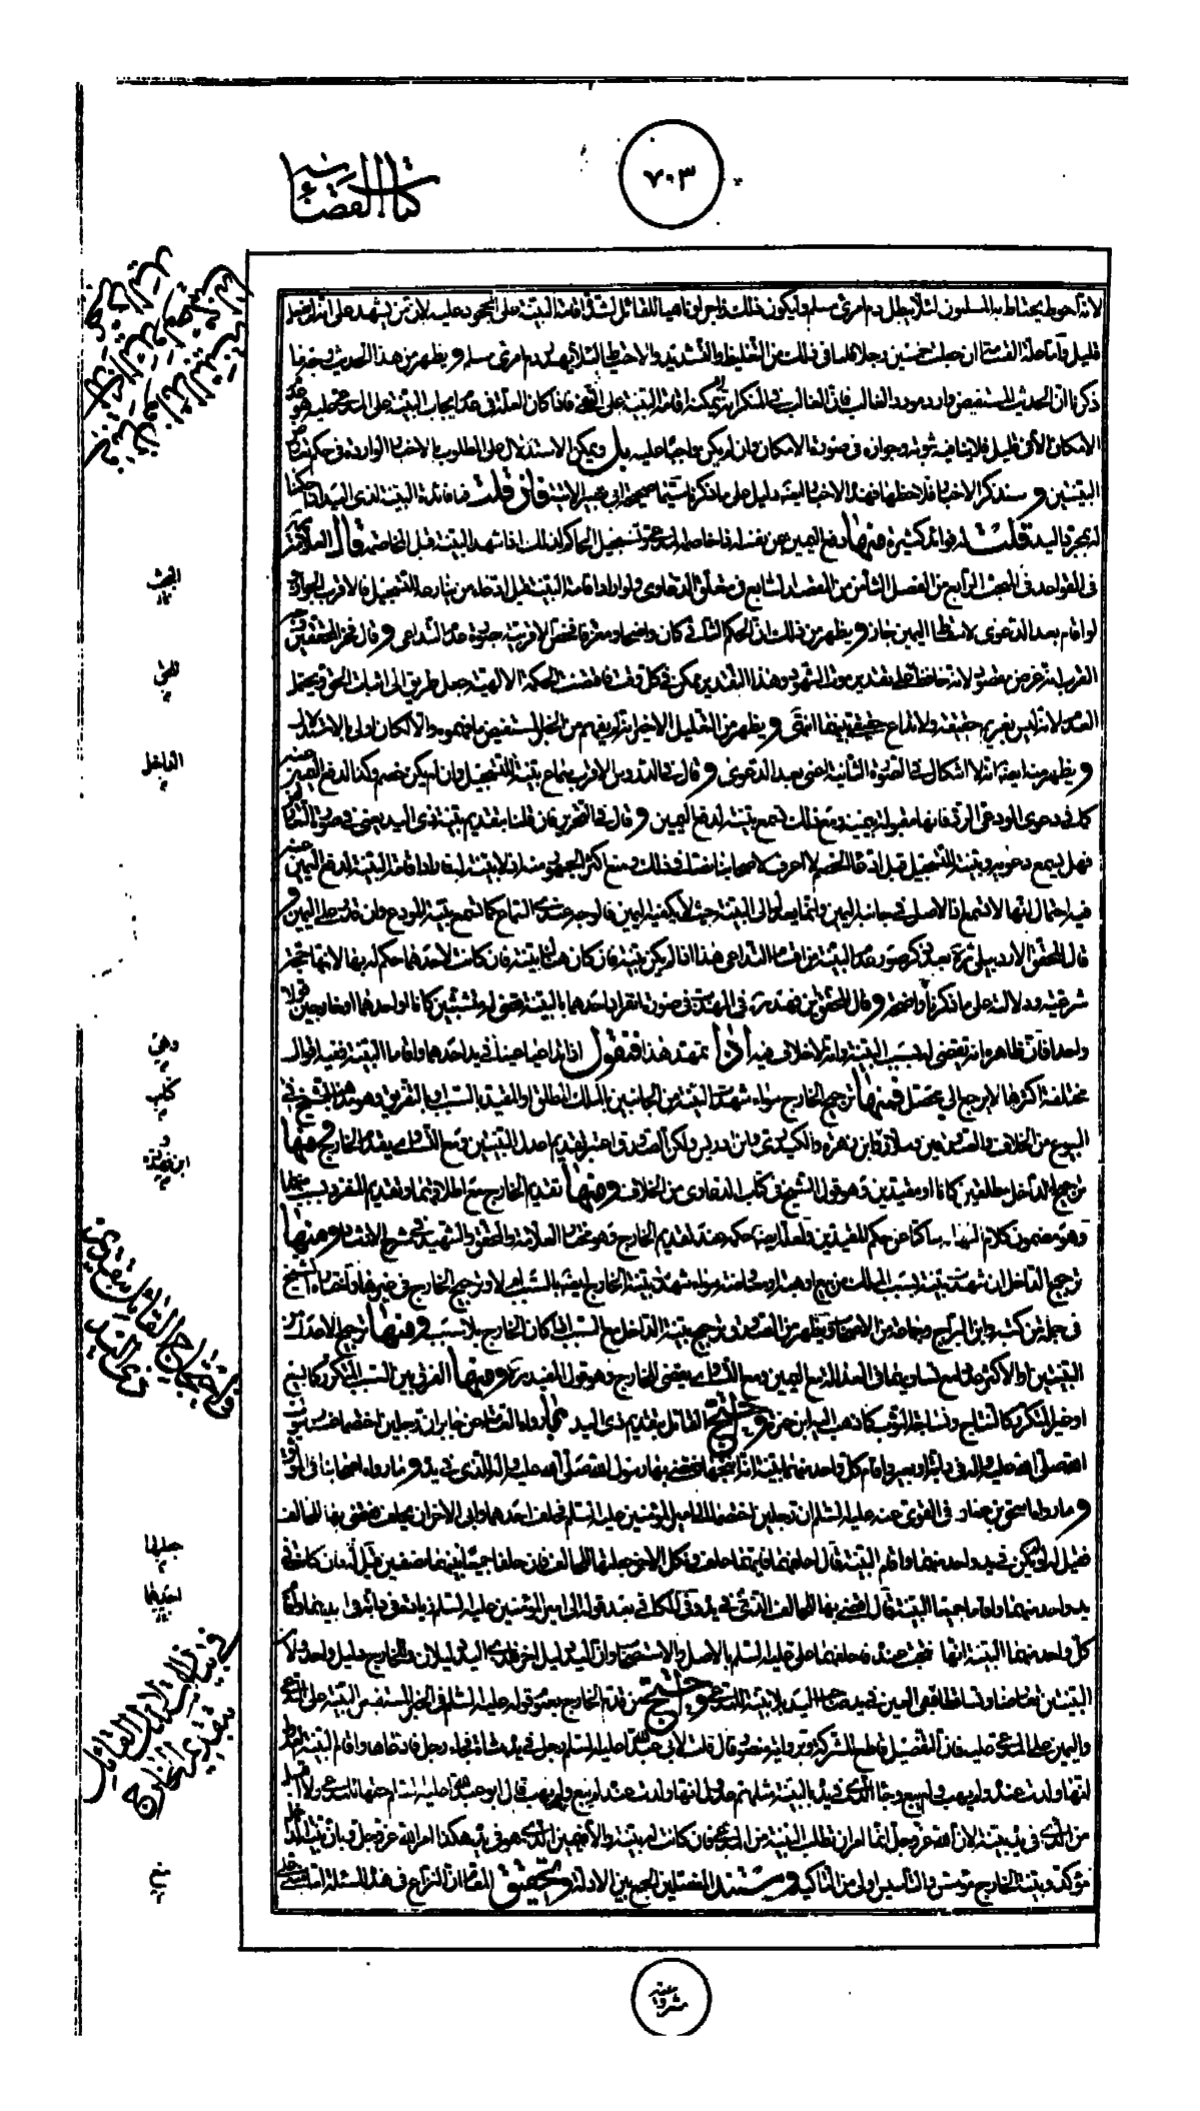 ٧٠٣
كتاب القضاء
لانه احوط يحتاط به المسلمون لئلا يبطل دم امرئ مسلم وليكون ذلك زاجرا وناهيا للقاتل لشدة اقامة البينة على الجحود عليه لان من يشهد على انه لم يفعل
قليل واما علة القسامة ان جعلت خمسين رجلا فلما في ذلك من التغليظ والتشديد والاحتياط لئلا يهدر دم امرئ مسلم ويظهر من هذا الحديث وغيره ما
ذكرنا ان الحديث المستفيض وارد مورد الغالب فان الغالب في المنكر انه لا يمكنه اقامة البينة على النفي فاذا كان العلة في عدم ايجاب البينة على المدعى عليه هو عدم
الامكان الا في قليل فلا ينافيه ثبوته وجوازه في صورة الامكان وان لم يكن واجبا عليه بل ويمكن الاستدلال على المطلوب بالاخبار الواردة في حكم تعارض
البينتين وسنذكر الاخبار فلاحظها فهذه الاخبار ايضا دليل على ما ذكرنا سيما صحيحة ابي بصير الاتية فان قلت فما فائدة البينة لذي اليد اذا حكمنا
له بمجرد اليد قلت له فوائد كثيرة منها رفع اليمين عن نفسه اذا خاصمه المدعي وتسجيل الحاكم له ذلك اذا شهد البينة قبل المخاصمة قال العلامة
في القواعد في المبحث الرابع من الفصل الثامن من المقصد السابع في متعلق الدعاوى ولو اراد اقامة البينة قبل ادعاء من ينازعه للتسجيل فالاقرب الجواز
لو اقام بعد الدعوى لاسقاط اليمين جاز ويظهر من ذلك ان الحكم الثاني كان واضحا ومفروغا فخص الاقربية بصورة عدم التداعي وقال فخر المحققين
القرب انه غرض مقصود لانه حافظ على تقدير موت الشهود وهذا التقدير ممكن في كل وقت فاقتضت الحكمة الالهية جعل طريق الى اثبات الحق ويحتمل
العدم لانه ليس بغريم حقيقة ولا تداعي حقيقة بينهما انتهى ويظهر من التعليل الاخير انه لم يفهم من الخبر المستفيض ما فهموه والا لكان اولى بالاستدلال
ويظهر منه ايضا انه لا اشكال في الصورة الثانية اعني بعد الدعوى وقال في الدروس الاقرب سماع بينة التسجيل وان لم يكن خصم وكذا لدفع اليمين عنه
كما في دعوى الودعي الرد فانها مقبولة بيمينه ومع ذلك تسمع بينته لدفع اليمين وقال في التحرير فان قلنا بتقديم بينة ذي اليد يعني في صورة التعارض
فهل يسمع دعويه وبينته للتسجيل قبل ادعاء الخصم لا اعرف لاصحابنا نصا في ذلك ومنع اكثر الجمهور منه اذ لا بينة له فاذا اراد اقامة البينة لدفع اليمين عنه
فيه احتمال انها لا تسمع اذ الاصل في جانبه اليمين وانما يعدل الى البينة حيث لا يكفيه اليمين فالوجه عندي السماع كما تسمع بينة المودع وان قدر على اليمين و
قال المحقق الاردبيلي ره بعد ذكر صور عدم البينة من اقسام التداعي هذا اذا لم يكن بينة فان كان هناك بينة فان كانت لاحدهما حكم له بها لانها حجة
شرعية ودلالته على ما ذكرنا واضحة وقال المحقق ابن فهد ره في المهذب في صورة انفراد احدهما بالبينة يقضى له متشبثين كانا او احدهما او خارجين قولا
واحدا فان ظاهره انه يقضى له بسبب البينة وانه لا خلاف فيه اذا تمهد هذا فنقول اذا تداعيا عينا في يد احدهما واقاما البينة ففيه اقوال
مختلفة اكثرها لا يرجع الى محصل فمنها ترجيح الخارج سواء شهدت البينة من الجانبين بالملك المطلق او المقيد بالسبب او بالتفريق وهو مذهب الشيخ في
البيوع من الخلاف والصدوقين وسلار وابن زهرة والكيدري وابن ادريس ولكن الصدوق اعتبر تقديم اعدل البينتين ومع التساوي يقدم الخارج ومنها
ترجيح الداخل مطلقين كانا او مقيدين وهو قول الشيخ في كتاب الدعاوى من الخلاف ومنها تقديم الخارج مع اطلاقهما وتقديم المنفرد بسببها
وهو مضمون كلام النهاية ساكتا عن حكم المقيدين ولعله ايضا حكمه عنده تقديم الخارج وهو مختار العلامة والمحقق والشهيد في شرح الارشاد ومنها
ترجيح الداخل ان شهدت بينته بسبب الملك من بيع او هبة او معاوضة سواء شهدت بينة الخارج ايضا بالسبب ام لا وترجيح الخارج في غيرها واختاره الشيخ
في جملة من كتبه وابن البراج وجماعة من الاصحاب ويظهر من الصدوق ترجيح بينة الداخل مع السبب اذا كان الخارج بلا سبب ومنها ترجيح الاعدل من
البينتين او الاكثر عددا مع تساويهما في العدالة مع اليمين ومع التساوي يقضى للخارج وهو قول المفيد ره ومنها الفرق بين السبب المتكرر كالبيع
او غير المتكرر كالنتاج ونساجة الثوب كما ذهب اليه ابن حمزة واحتج القائل بتقديم ذي اليد بما رواه العامة عن جابر ان رجلين اختصما عند رسول
الله صلى الله عليه واله في دابة او بعير واقام كل واحد منهما بينة انه انتجها فقضى بها رسول الله صلى الله عليه واله للذي في يده وما رواه اصحابنا في الموثق
وما رواه اسحق بن عمار في القوي عنه عليه السلام ان رجلين اختصما الى امير المؤمنين عليه السلام فحلف احدهما وابى الاخر ان يحلف فقضى بها للحالف
فقيل له لو لم تكن في يد واحد منهما واقاما البينة قال احلفهما فايهما حلف ونكل الاخر جعلتها للحالف فان حلفا جميعا جعلتها بينهما نصفين قيل فان كانت في
يد واحد منهما واقاما جميعا البينة قال اقضي بها للحالف الذي هي في يده
كل واحد منهما البينة انها نتجت عنده فاحلفهما علي عليه السلام
البينتين تعارضتا وتساقطتا فبقي العين في يد صاحب اليد بلا بينة للمدعي واحتج من قدم الخارج بعموم قوله عليه السلام في الخبر المستفيض البينة على المدعي
واليمين على المدعى عليه فان التفصيل قاطع للشركة وبرواية منصور قال قلت لابي عبد الله عليه السلام رجل في يده شاة فجاء رجل فادعاها واقام البينة العدول
انها ولدت عنده ولم يهب ولم يبع وجاء الذي في يده بالبينة مثلهم عدول انها ولدت عنده لم يبع ولم يهب قال ابو عبد الله عليه السلام حقها للمدعي ولا اقبل
من الذي في يده بينة لان الله عز وجل انما امر ان تطلب البينة من المدعي فان كانت له بينة والا فيمين الذي هو في يده هكذا امر الله عز وجل وبان بينة الداخل
مؤكدة وبينة الخارج مؤسس والتأسيس اولى من التاكيد ومستند المفصلين الجمع بين الادلة وتحقيق المقام ان النزاع في هذه المسئلة
المبحث
الداخل
وهي
كتاب
ابن فهد ره
في احتجاج القائل بتقديم ذي اليد
جعلها
احديهما
في استدلال القائل بتقديم الخارج